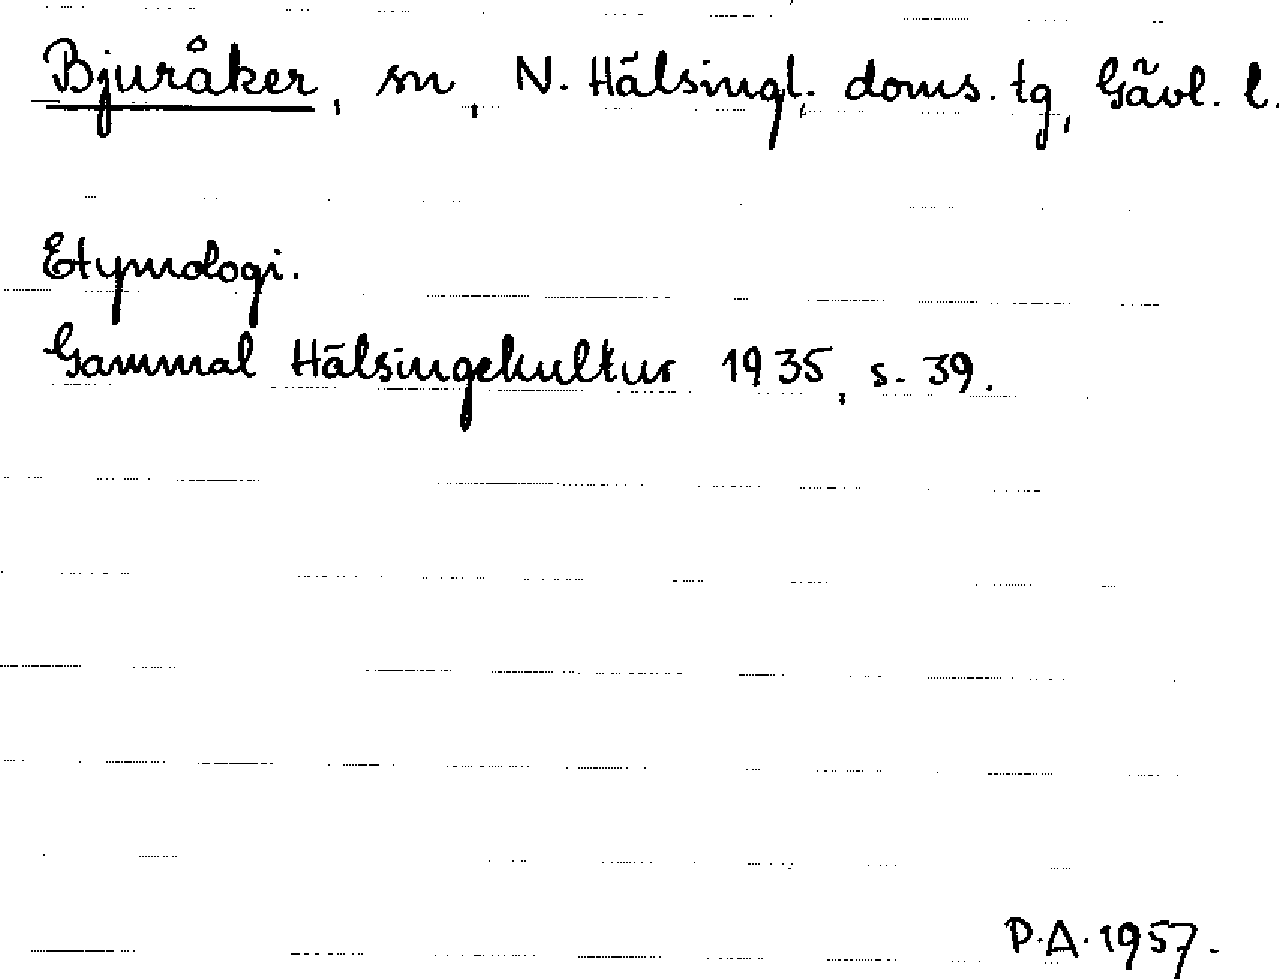 Bjuråker, sn, N. Hälsingl. doms. tg, Gävl. l.
Etymologi.
Gammal Hälsingekultur 1935, s. 39.
P.A. 1957.